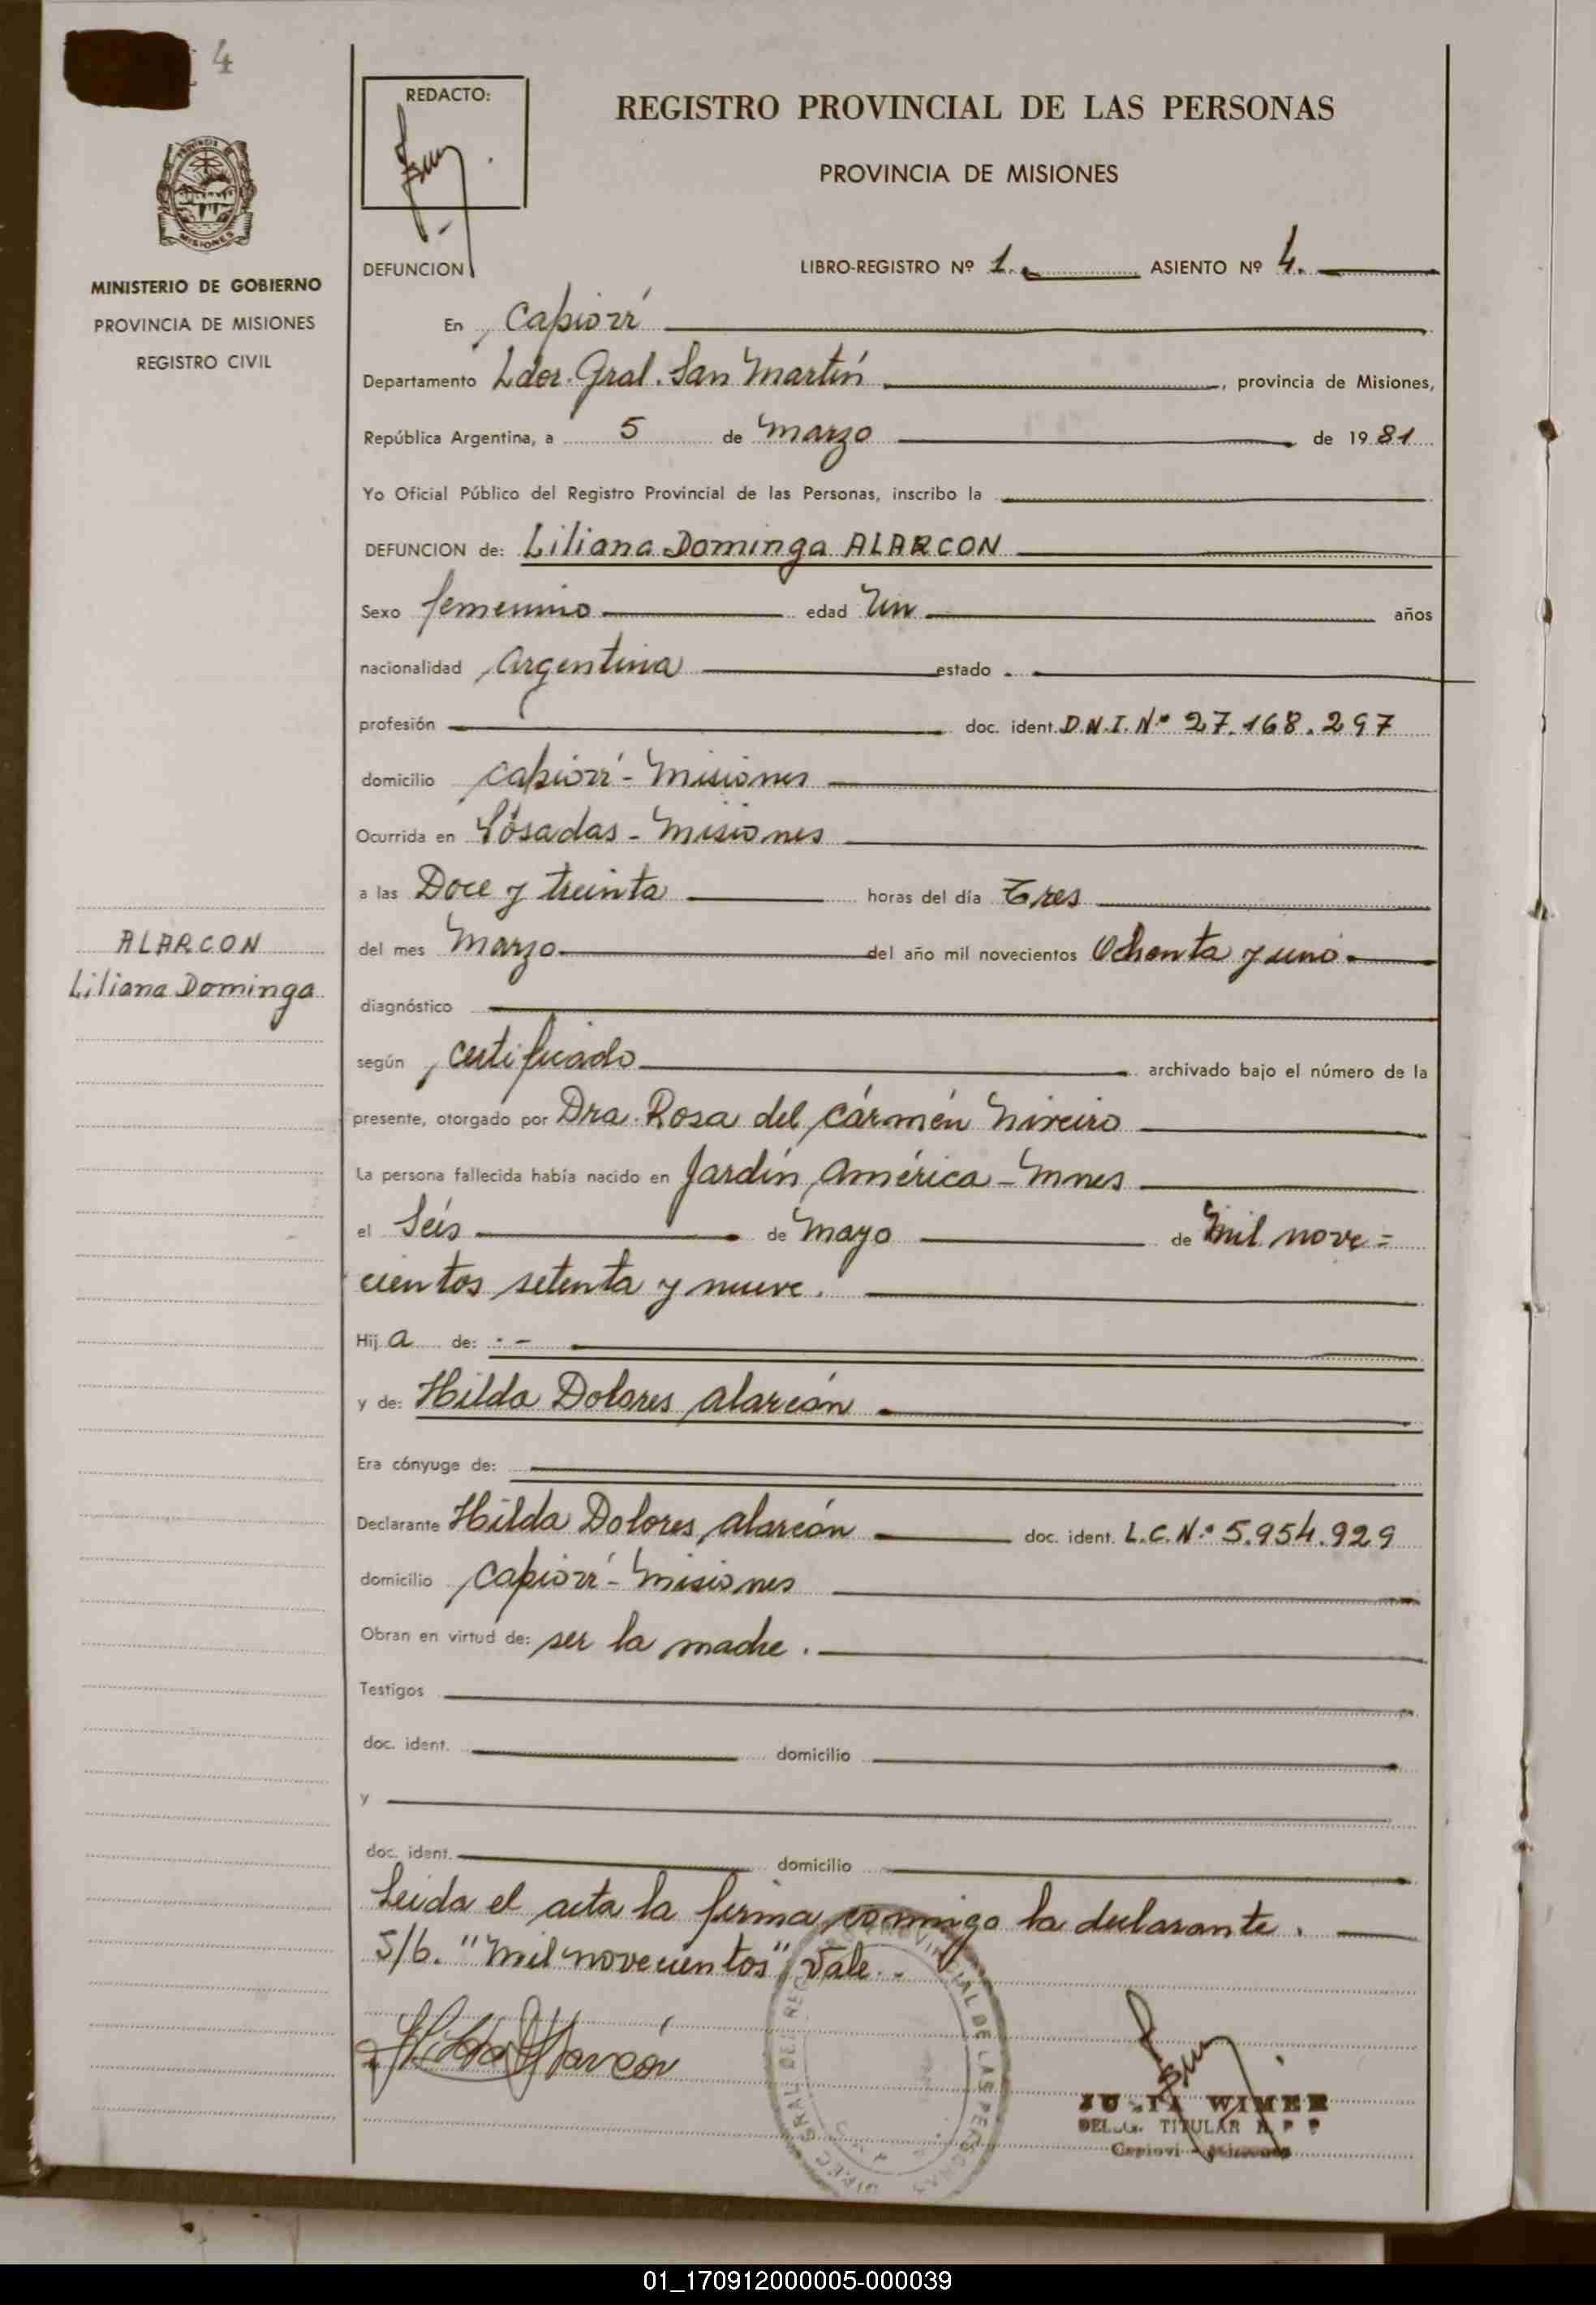 4
REDACTO:
REGISTRO PROVINCIAL DE LAS PERSONAS
PROVINCIA DE MISIONES
MISIONES
MINISTERIO DE GOBIERNO
PROVINCIA DE MISIONES
REGISTRO CIVIL
DEFUNCION
LIBRO-REGISTRO Nº 1. ASIENTO Nº 4.
En Capioví
Departamento Ldor. Gral. San Martín, provincia de Misiones,
República Argentina, a 5 de Marzo de 1981
Yo Oficial Público del Registro Provincial de las Personas, inscribo la
DEFUNCION de: Liliana Dominga ALARCON
Sexo femenino edad Un años
nacionalidad Argentina estado
profesión doc. ident. D.N.I. Nº 27.168.297
domicilio Capioví - Misiones
Ocurrida en Posadas - Misiones
a las Doce y treinta horas del día Tres
del mes Marzo del año mil novecientos Ochenta y uno
ALARCON
Liliana Dominga
diagnóstico
según certificado archivado bajo el número de la
presente, otorgado por Dra. Rosa del Cármen
La persona fallecida había nacido en Jardín América - Mnes
el Seis de Mayo de Mil nove=
cientos setenta y nueve.
Hija de: . -
y de: Hilda Dolores Alarcón
Era cónyuge de:
Declarante Hilda Dolores Alarcón doc. ident. L.C. Nº 5.954.929
domicilio Capioví - Misiones
Obran en virtud de: ser la madre.
Testigos
doc. ident. domicilio
y
doc. ident. domicilio
Leida el acta la firma conmigo la declarante.
S/b. "Mil novecientos" Vale.-
Hilda Alarcón
WIMER
TITULAR
Capiovi - Misiones
01_170912000005-000039